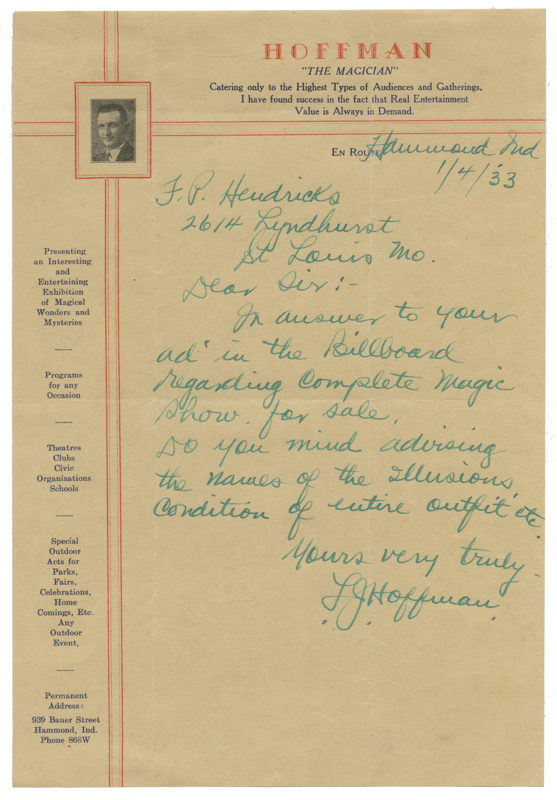 HOFFMAN
"THE MAGICIAN"
Catering only to the Highest Types of Audiences and Gatherings.
I have found success in the fact that Real Entertainment
Value is Always in Demand.
EN ROUTE Hammond Ind
1/4/33
F. P. Hendricks
2614 Lyndhurst
St Louis Mo.
Dear Sir:-
In answer to your
ad' in the Billboard
regarding Complete Magic
Show, for sale.
Do you mind advising
the names of the Illusions
Condition of entire outfit etc.
Yours very truly
L J Hoffman
Presenting
an Interesting
and
Entertaining
Exhibition
of Magical
Wonders and
Mysteries
Programs
for any
Occasion
Theatres
Clubs
Civic
Organizations
Schools
Special
Outdoor
Acts for
Parks,
Fairs,
Celebrations,
Home
Comings, Etc.
Any
Outdoor
Event.
Permanent
Address:
939 Bauer Street
Hammond, Ind.
Phone 868W